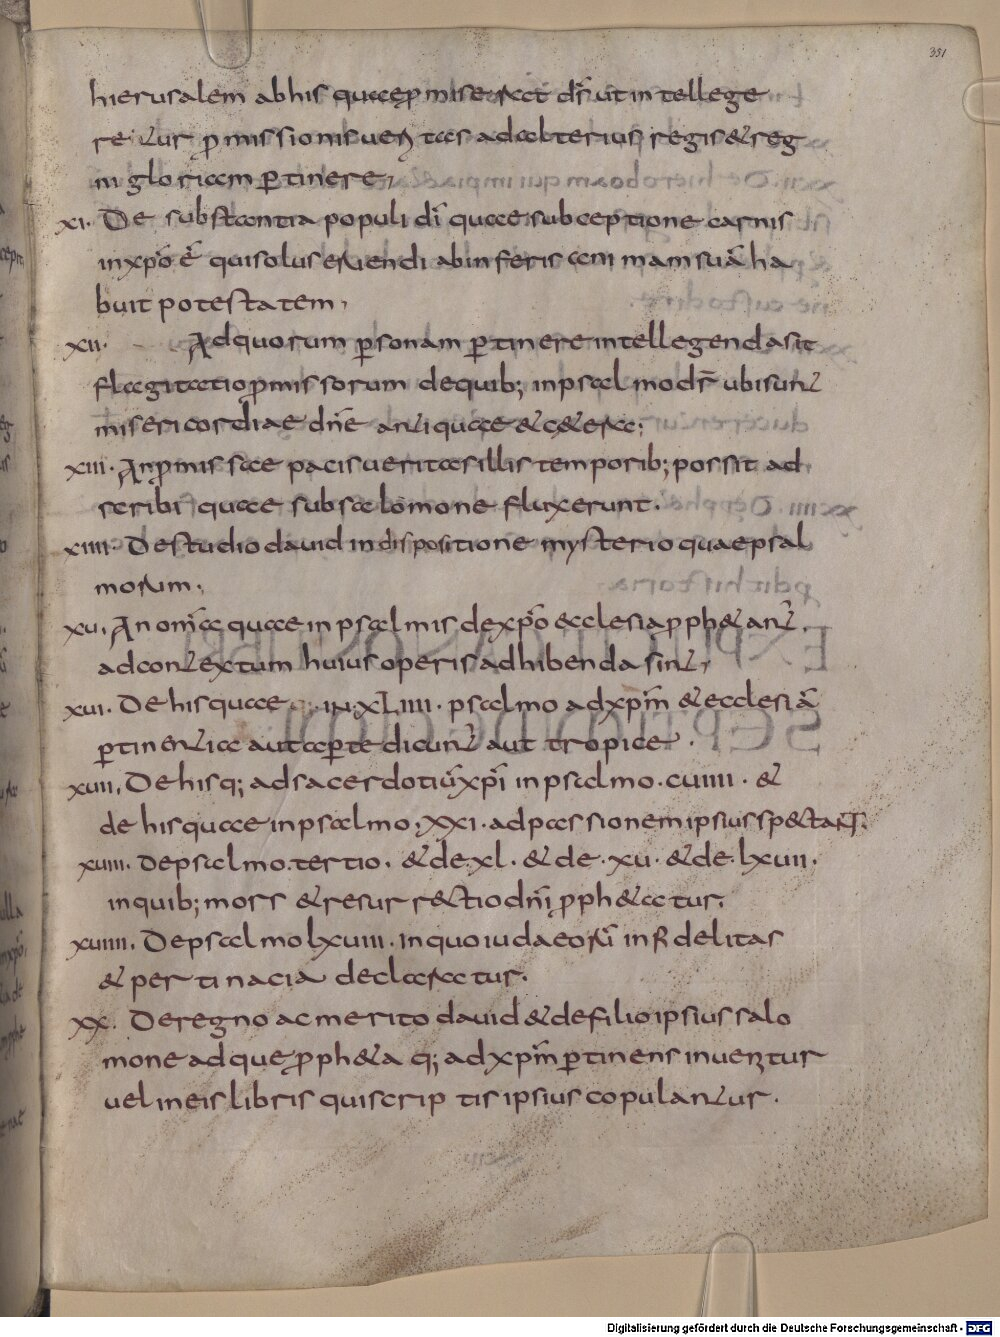 351
hierusalem ab his quae p̄miserat d̄s ut intellege
rentur p̄missionis ueritas ad alterius regis & reg
ni gloriam ꝑtinere,
XI. De substantia populi d̄i quae sub ceptione carnis
in xp̄o ē qui solus eruendi ab inferis animam suā ha
buit potestatem,
XII. Ad quorum ꝑsonam ꝑtinere intellegenda sit
flagitatio p̄missorum de quib; in psalmo d̄r ubi sunt
misericordiae dn̄e antiquae & cetera;
XIII. An p̄missae pacis ueritas illis temporib; possit ad
scribi quae sub salomone fluxerunt.
XIIII. De studio dauid in dispositione mysterioquae psal
morum;
XV. An om̄a quae in psalmis de xp̄o & ecclesia p̄ph&ant̄
ad contextum huius operis adhibenda sint,
XVI. De his quae IN XLIIII. psalmo ad xp̄m & ecclesiā
ꝑtinentia aut aꝑte dicunt̄ aut tropice.
XVII. De hisq; ad sacerdotiū xp̄i in psalmo. CVIIII. &
de his quae in psalmo, XXI. ad passionem ipsius spectant.
XVIII. De psalmo. tertio. & de XL. & de. XV. & de. LXVII.
in quib; mors & resurrectio dn̄i p̄ph&atur,
XVIIII. De psalmo LXVIII. in quo iudaeorū infidelitas
& pertinacia declaratur.
XX. De regno ac merito dauid & de filio ipsius salo
mone ad que p̄ph&ia q; ad xp̄m ꝑtinens inuenitur
uel in eis libris qui scriptis ipsius copulantur.
Digitalisierung gefördert durch die Deutsche Forschungsgemeinschaft - DFG